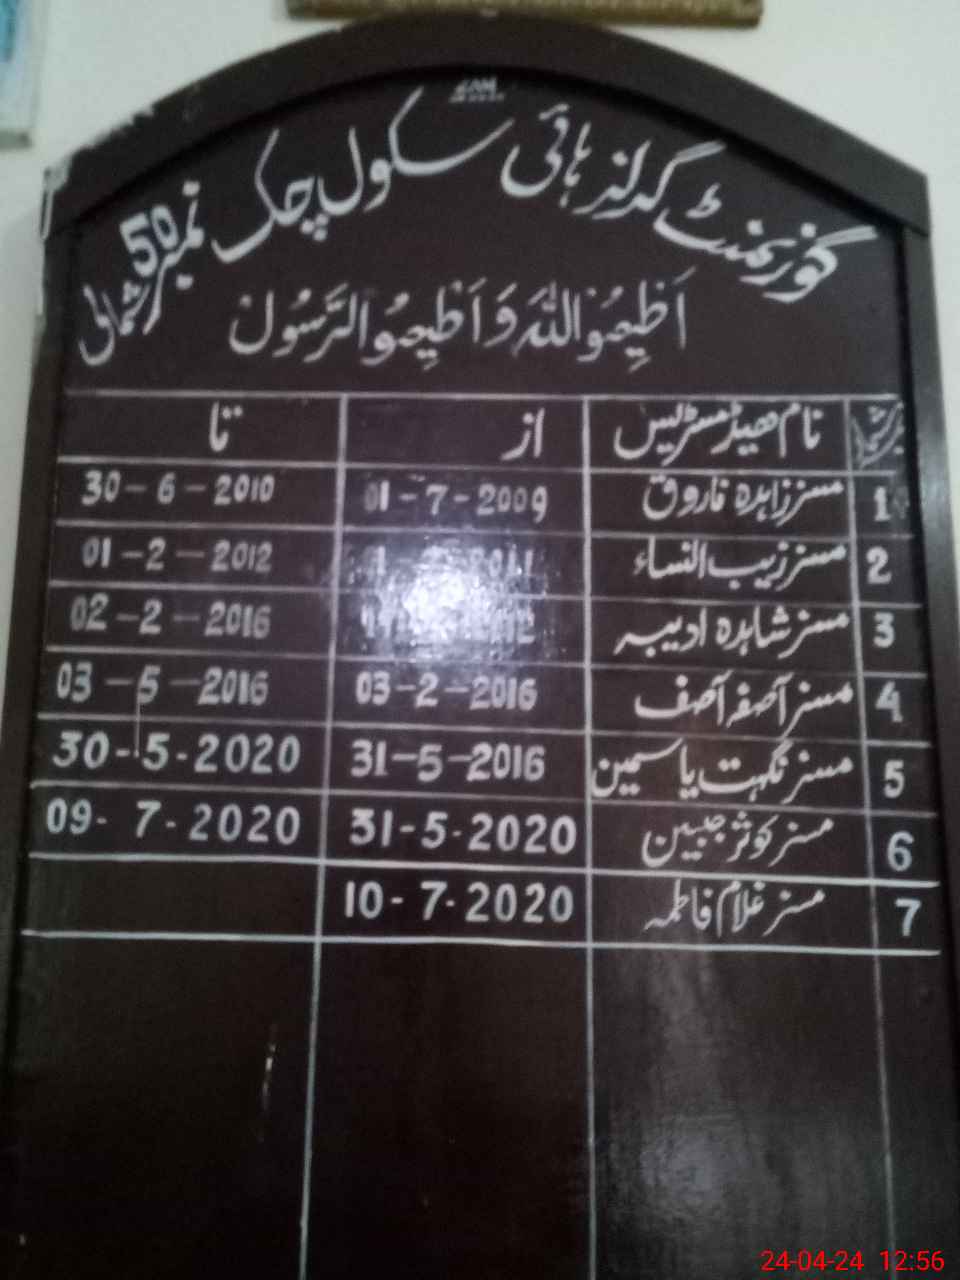 گورنمنٹ گرلز ہائی سکول چک نمبر 50 شمالی
اَطِیعُوا اللّٰہَ وَ اَطِیعُوا الرَّسُولَ
نمبرشمار نام ھیڈ مسٹریس از تا
1 مسز زاہدہ فاروق 01-7-2009 30-6-2010
2 مسز زیب النساء 01-2-2012
3 مسز شاہدہ ادیبہ 02-2-2016
4 مسز آصفہ آصف 03-2-2016 03-5-2016
5 مسز نگہت یاسمین 31-5-2016 30-5-2020
6 مسز کوثر جبین 31-5-2020 09-7-2020
7 مسز غلام فاطمہ 10-7-2020
24-04-24 12:56